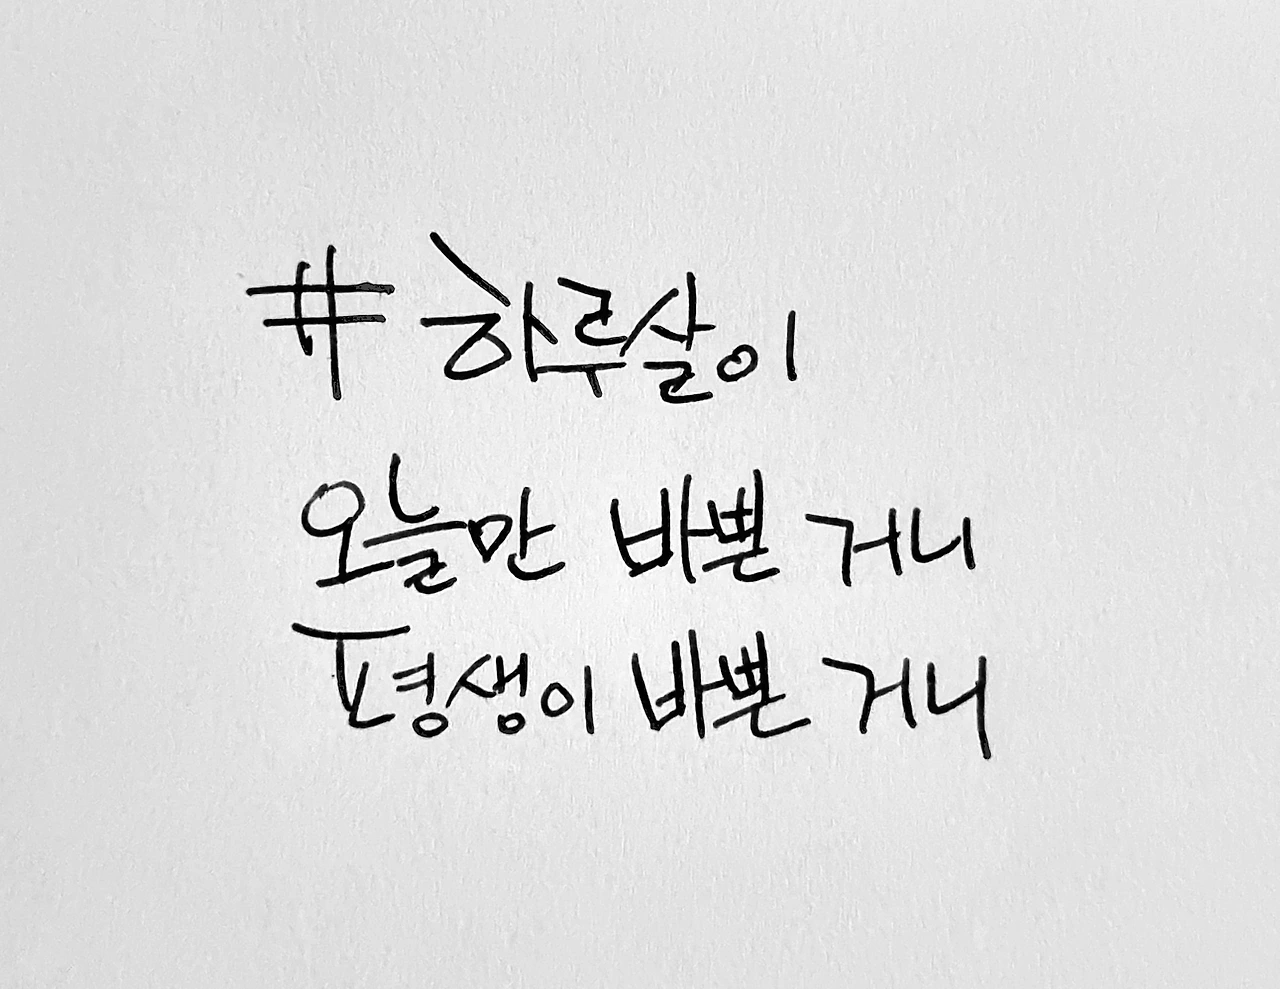 #하루살이
오늘만 바쁜 거니
평생이 바쁜 거니